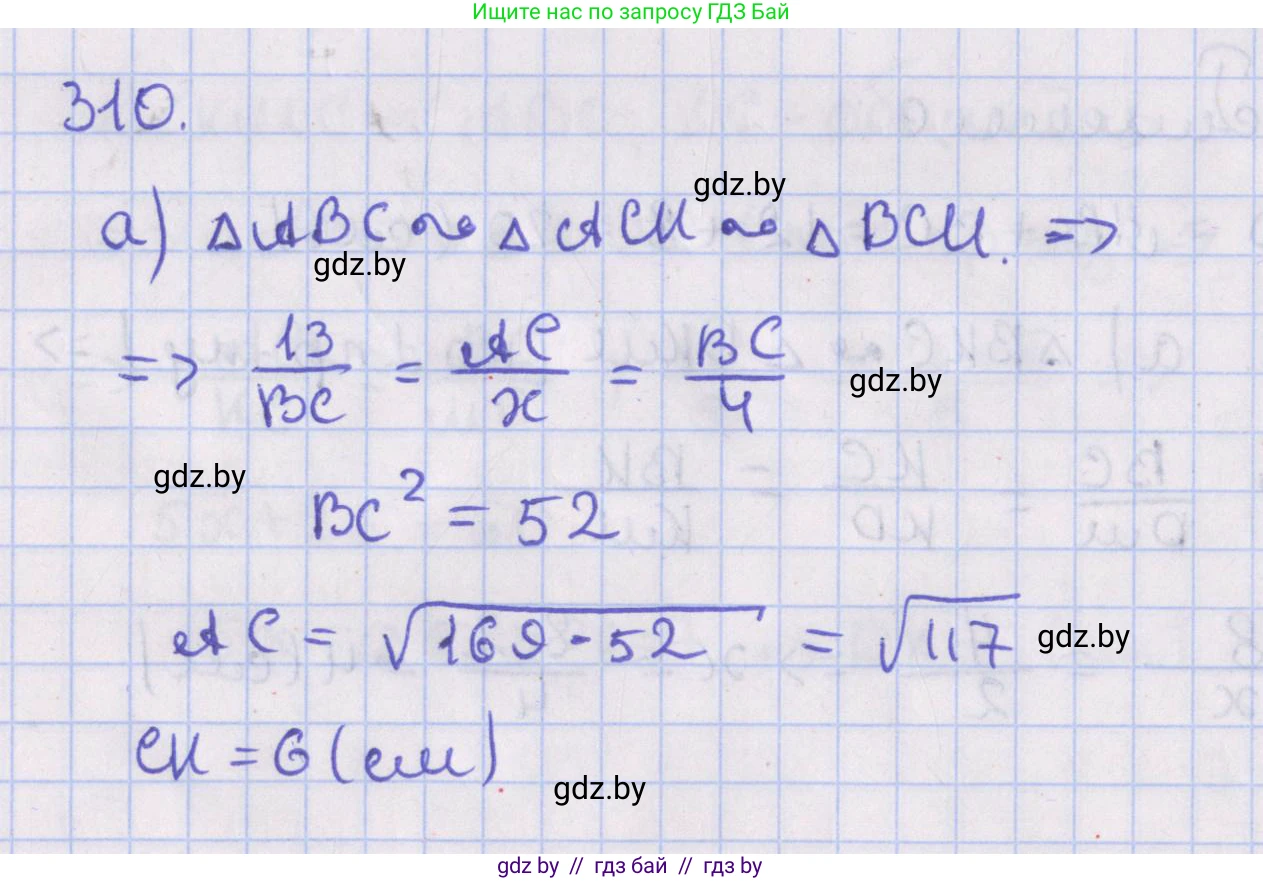 Ищите нас по запросу ГДЗ Бай
310.
gdz.by
а) △ABC ∾ △ACH ∾ △BCH. =>
gdz.by
=> 13/BC = AC/x = BC/4
gdz.by
gdz.by
BC² = 52
AC = √169-52 = √117
gdz.by
CH = 6 (см)
gdz.by
gdz by // гдз бай // гдз by